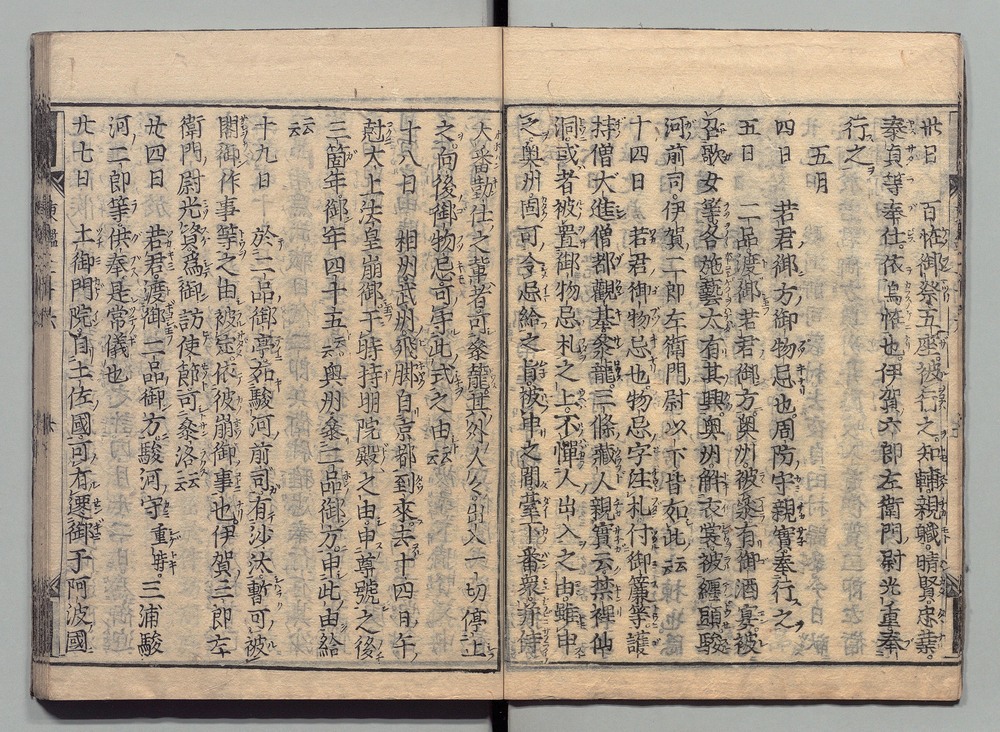 廿日 百怪御祭五座被行之知輔親職晴賢忠業
奉貞等奉仕依鳥怪也伊賀六郎左衛門尉光重奉
行之
五月
四日 若君御方御物忌也周防守親實奉行之
五日 二品渡御若君御方奥州被參有御酒宴被
召歌女等各施藝太有其興奥州解衣裳被纏頭駿
河前司伊賀二郎左衛門尉以下皆如此云云
十四日 若君御物忌也物忌字注札付御簾等護
持僧大進僧都觀基參籠三條藏人親實云禁裡仙
洞或者被置御物忌札之上不憚人出入之由雖申
之奥州固可令忌給之旨被申之間臺下番衆并侍
大番勤仕之輩者可參籠其外人々出入一切停止
之向後御物忌可守此式之由云云
十八日 相州武州飛脚自京都到來去十四日午
尅太上法皇崩御于時持明院殿之由申尊號之後
三箇年御年四十五云云奥州參二品御方申此由給
云云
十九日 於二品御亭駿河前司有沙汰暫可被
閣御作事等之由被定依彼崩御事也伊賀三郎左
衛門尉光資爲御訪使節可參洛云云
廿四日 若君渡御二品御方駿河守重時三浦駿
河二郎等供奉是常儀也
廿七日 土御門院自土佐國可有遷御于阿波國